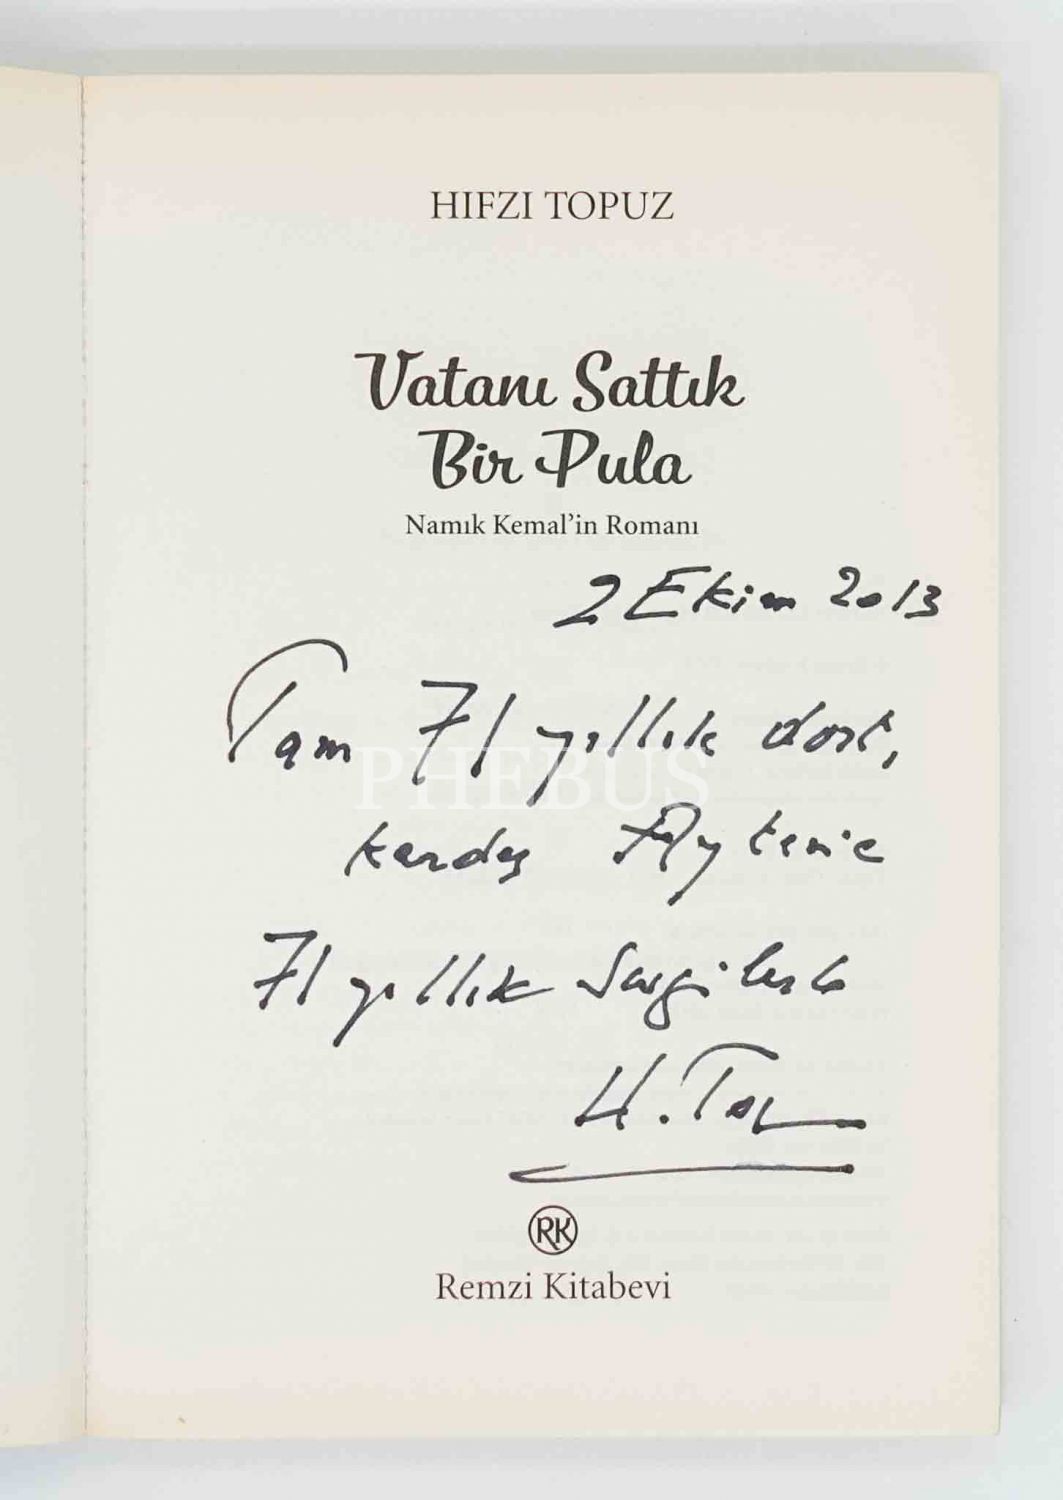 HIFZI TOPUZ
Vatanı Sattık
Bir Pula
Namık Kemal'in Romanı
2 Ekim 2013
Tam 71 yıllık dost,
PHEBUS
kardeş Ayten'e
71 yıllık sevgilerle
H. Top
RK
Remzi Kitabevi